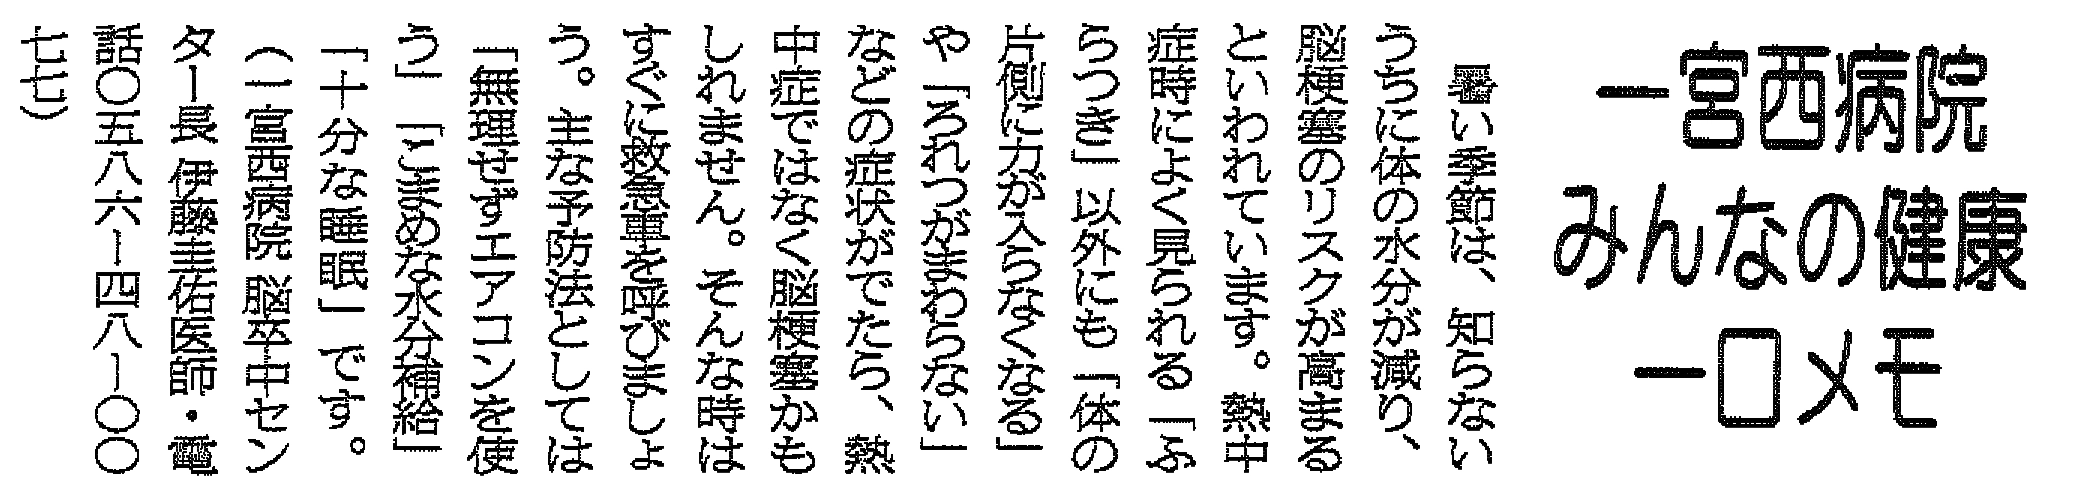 一宮西病院
みんなの健康
一口メモ
暑い季節は、知らない
うちに体の水分が減り、
脳梗塞のリスクが高まる
といわれています。熱中
症時によく見られる「ふ
らつき」以外にも「体の
片側に力が入らなくなる」
や「ろれつがまわらない」
などの症状がでたら、熱
中症ではなく脳梗塞かも
しれません。そんな時は
すぐに救急車を呼びましょ
う。主な予防法としては
「無理せずエアコンを使
う」「こまめな水分補給」
「十分な睡眠」です。
（一宮西病院 脳卒中セン
ター長 伊藤圭佑医師・電
話〇五八六ー四八ー〇〇
七七）